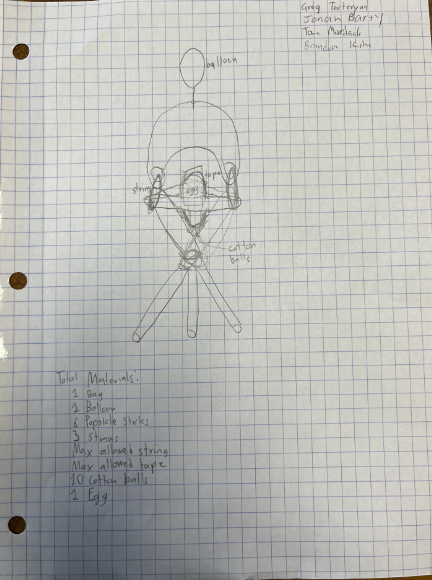 Greg Torteryan
Jonah Barry
Tom Murdock
Brandon Kim
balloon
tape
string
egg
cotton
balls
Total Materials:
1 Bag
1 Baloon
6 Popsicle sticks
3 Straws
Max allowed string
Max allowed tape
10 Cotton balls
1 Egg